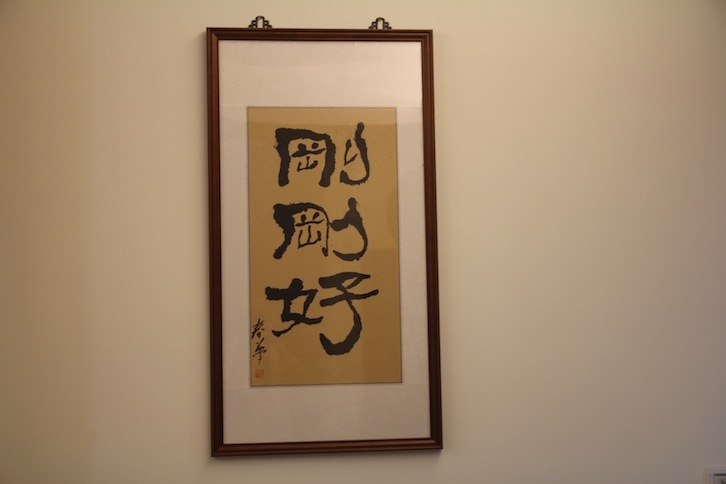 剛剛好